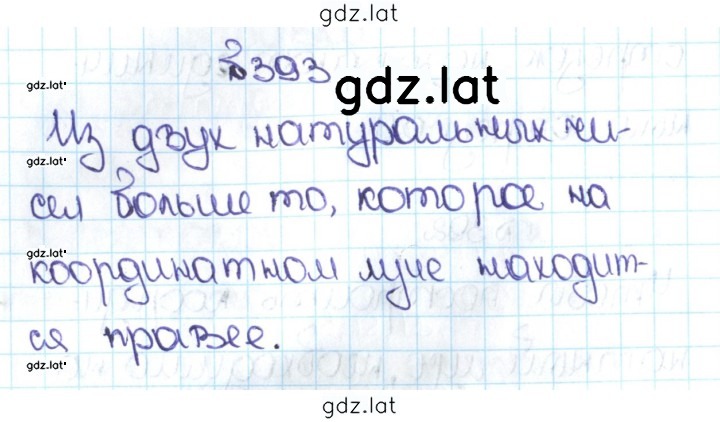 gdz.lat
№393
gdz.lat
gdz.lat
Из двух натуральных чи-
gdz.lat
сел больше то, которое на
gdz.lat
координатном луче находит-
ся правее.
gdz.lat
gdz.lat